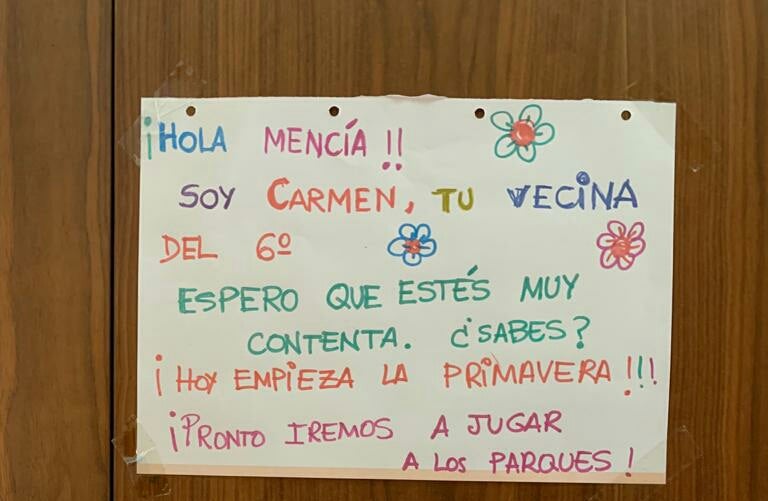 ¡HOLA MENCÍA !!
SOY CARMEN, TU VECINA
DEL 6º
ESPERO QUE ESTÉS MUY
CONTENTA. ¿SABES?
¡HOY EMPIEZA LA PRIMAVERA !!!
¡PRONTO IREMOS A JUGAR
A LOS PARQUES !